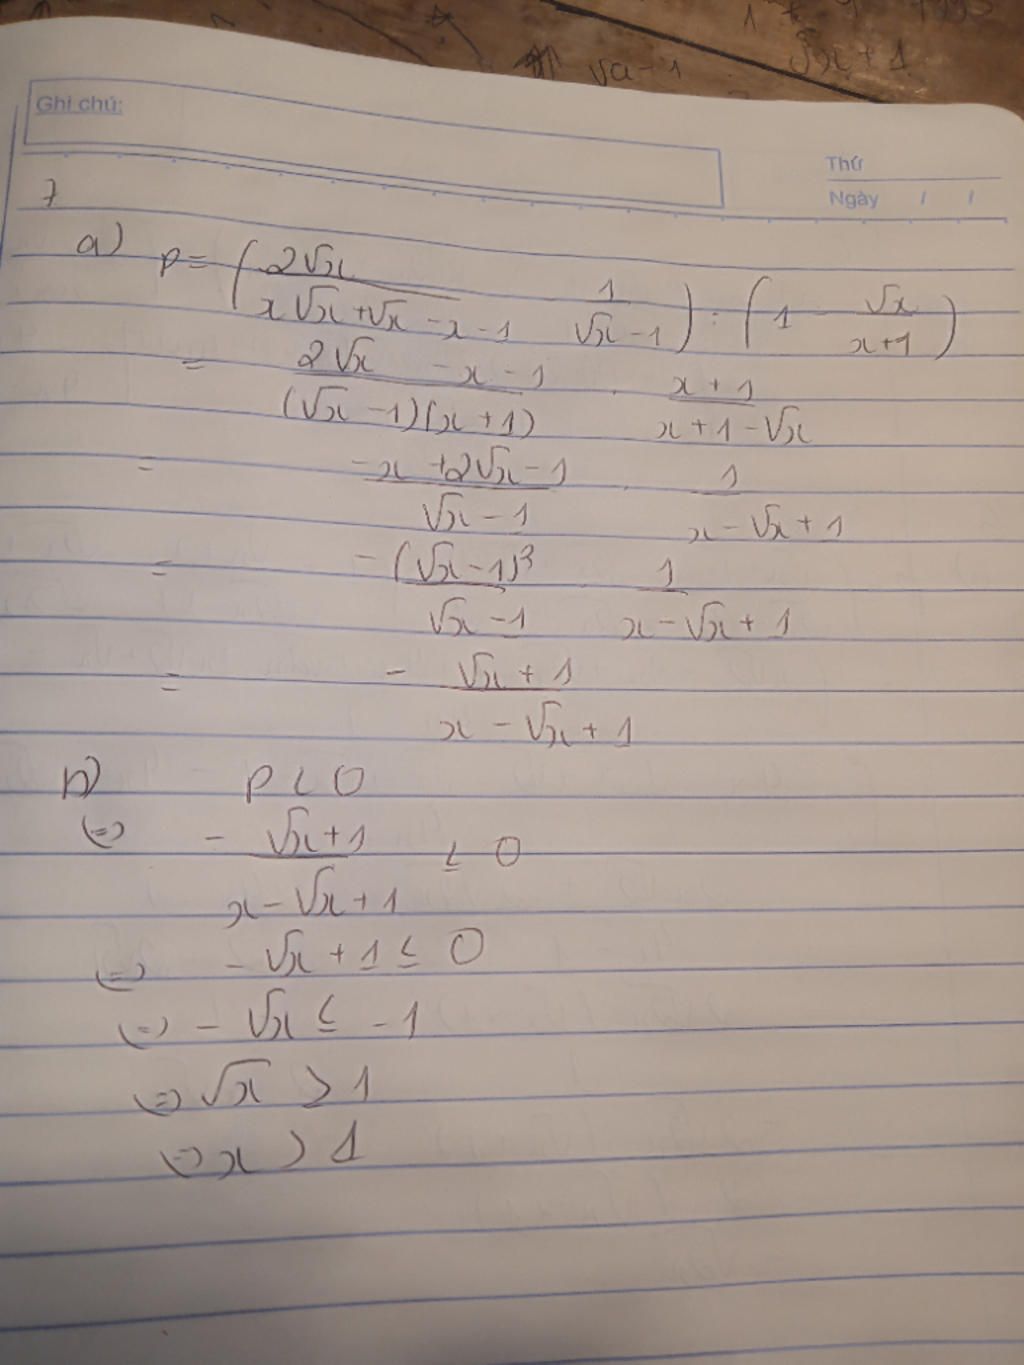 1 + 9
√a - 1
√x + 1
Ghi chú:
Thứ
Ngày / /
7
a) P = (2√x / (x√x + √x - x - 1) 1 / (√x - 1)) : (1 - √x / (x + 1))
= (2√x - x - 1) / ((√x - 1)(x + 1)) . (x + 1) / (x + 1 - √x)
= (-x + 2√x - 1) / (√x - 1) . 1 / (x - √x + 1)
= -(√x - 1)² / (√x - 1) 1 / (x - √x + 1)
= - (√x + 1) / (x - √x + 1)
b) P < 0
(=) - (√x + 1) / (x - √x + 1) ≤ 0
(=) - √x + 1 ≤ 0
(=) - √x ≤ - 1
(=) √x > 1
(=) x > 1